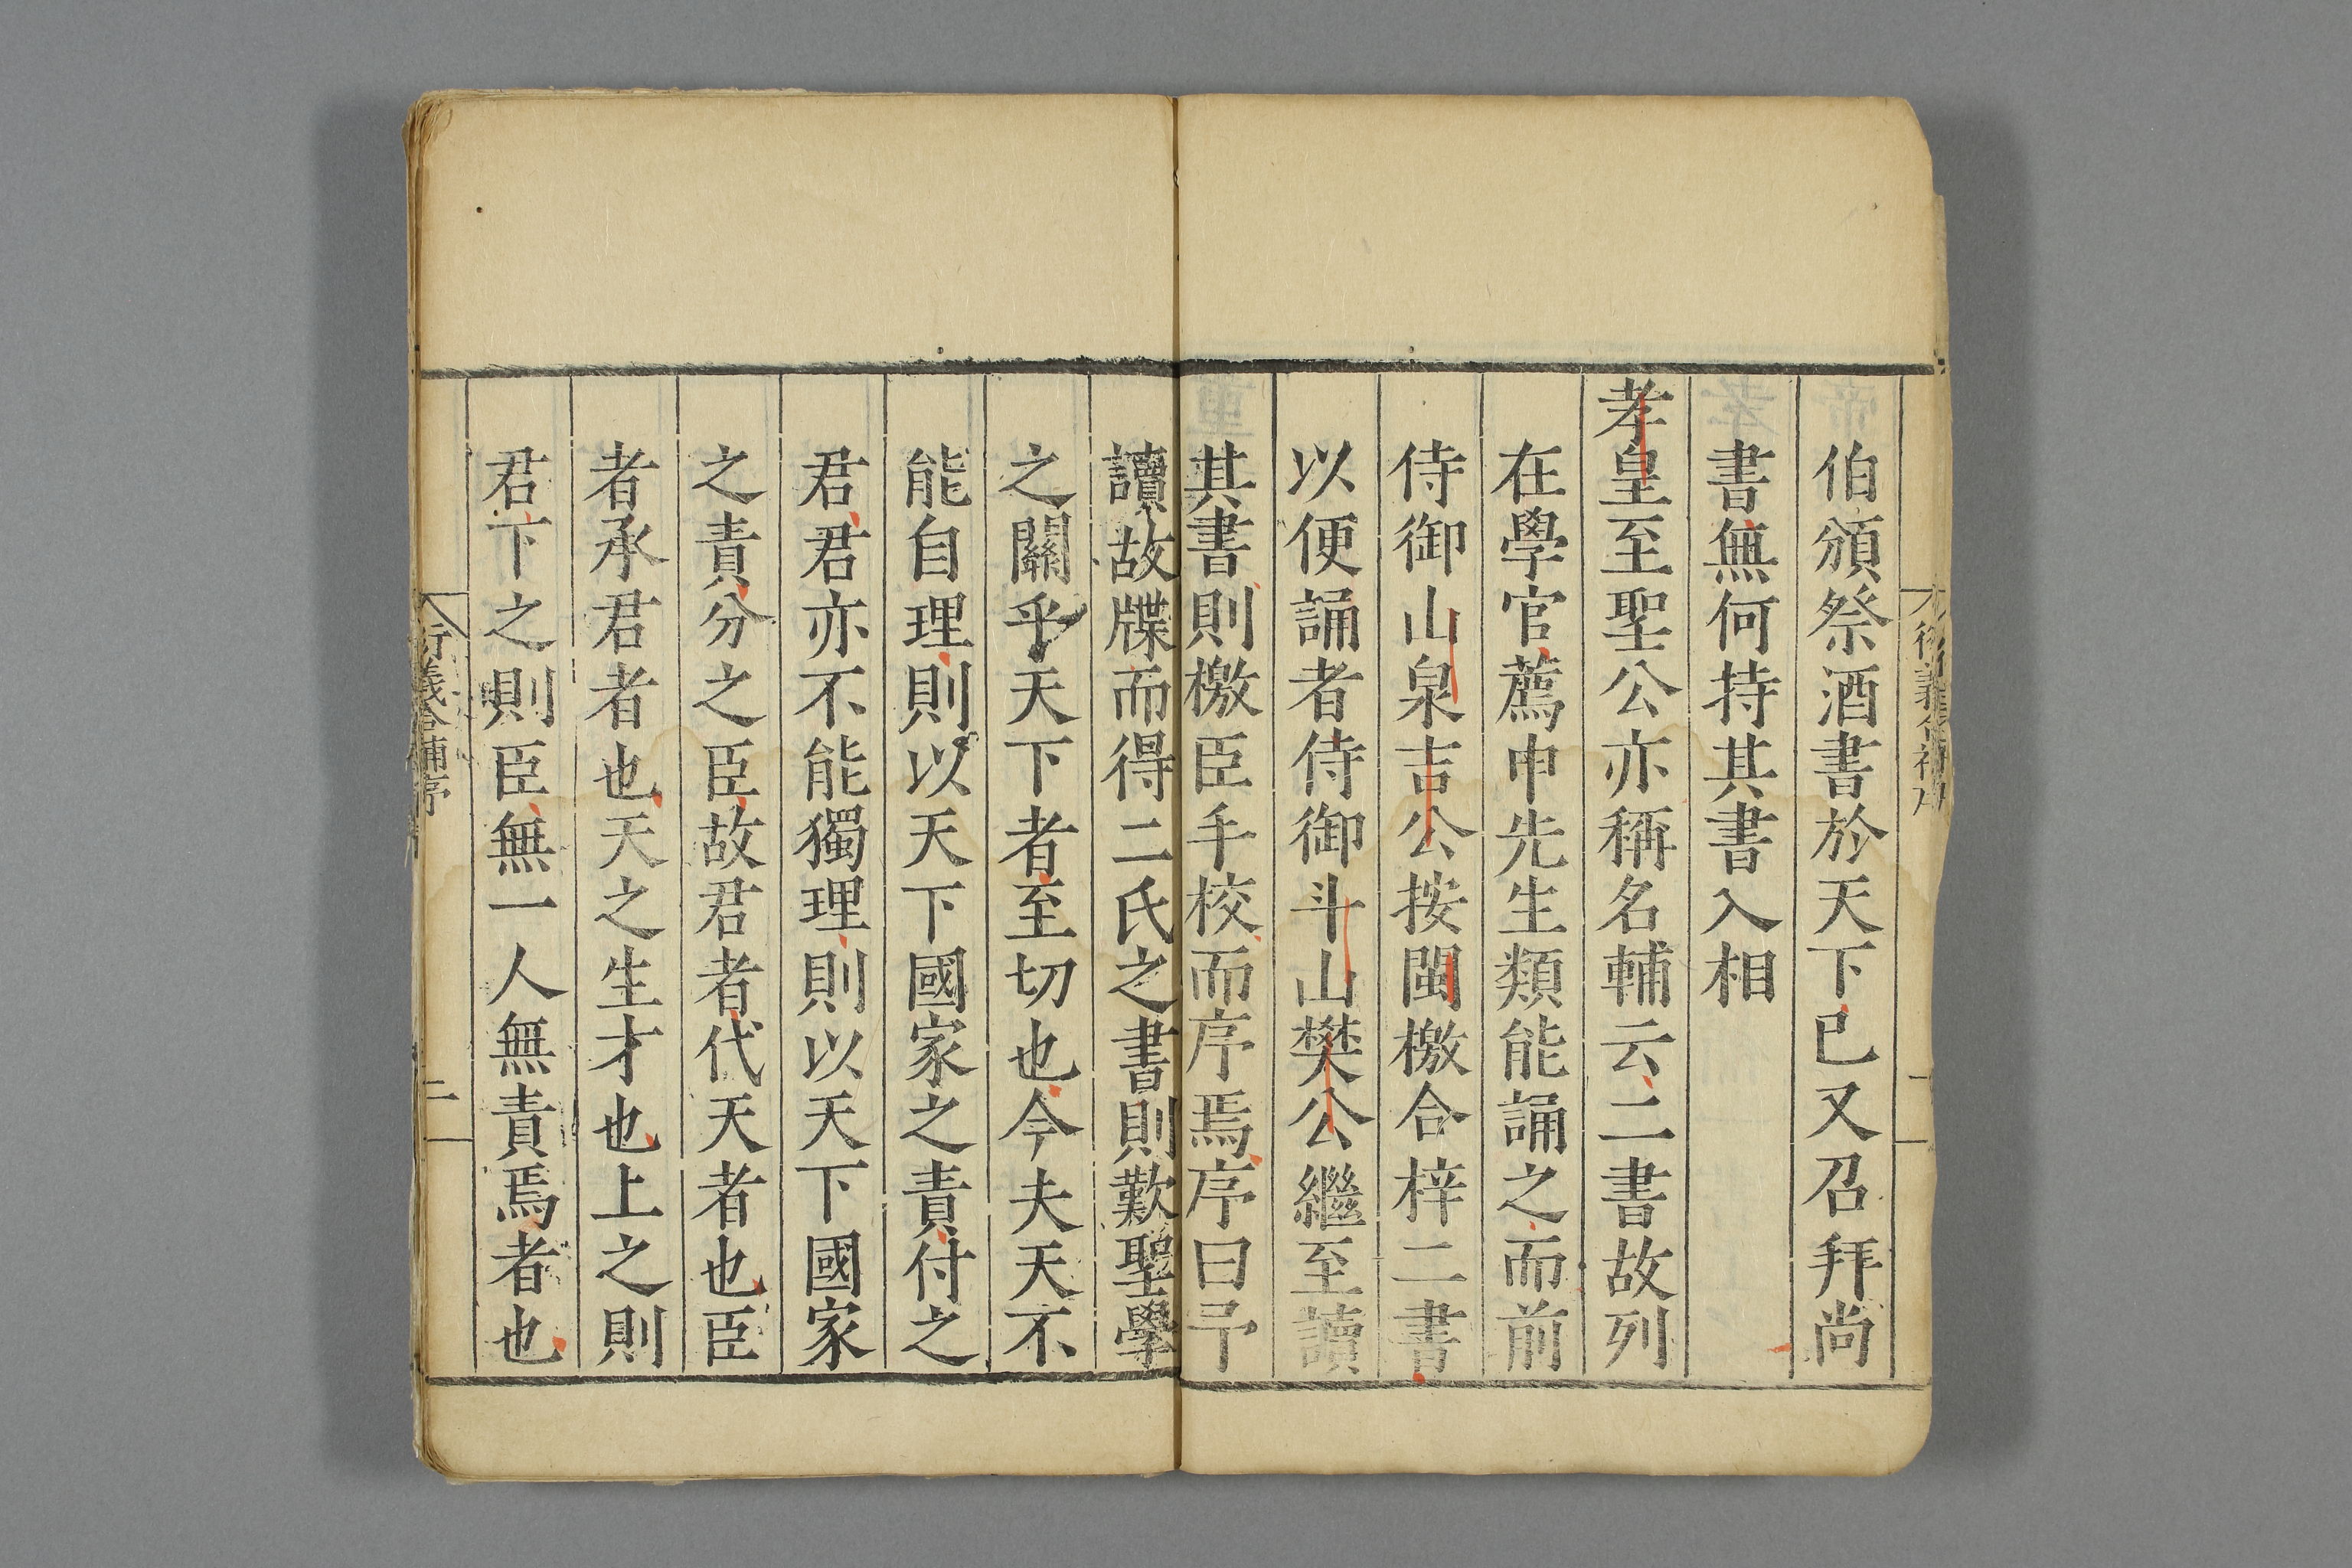 伯頒祭酒書於天下已又召拜尚
書無何持其書入相
孝皇至聖公亦稱名輔云二書故列
在學官薦申先生類能誦之而前
侍御山泉吉公按閩檄合梓二書
以便誦者侍御斗山樊公繼至讀
其書則檄臣手校而序焉序曰予
讀故牒而得二氏之書則歎聖學
之關乎天下者至切也今夫天不
能自理則以天下國家之責付之
君君亦不能獨理則以天下國家
之責分之臣故君者代天者也臣
者承君者也天之生才也上之則
君下之則臣無一人無責焉者也
衍義會補序
二